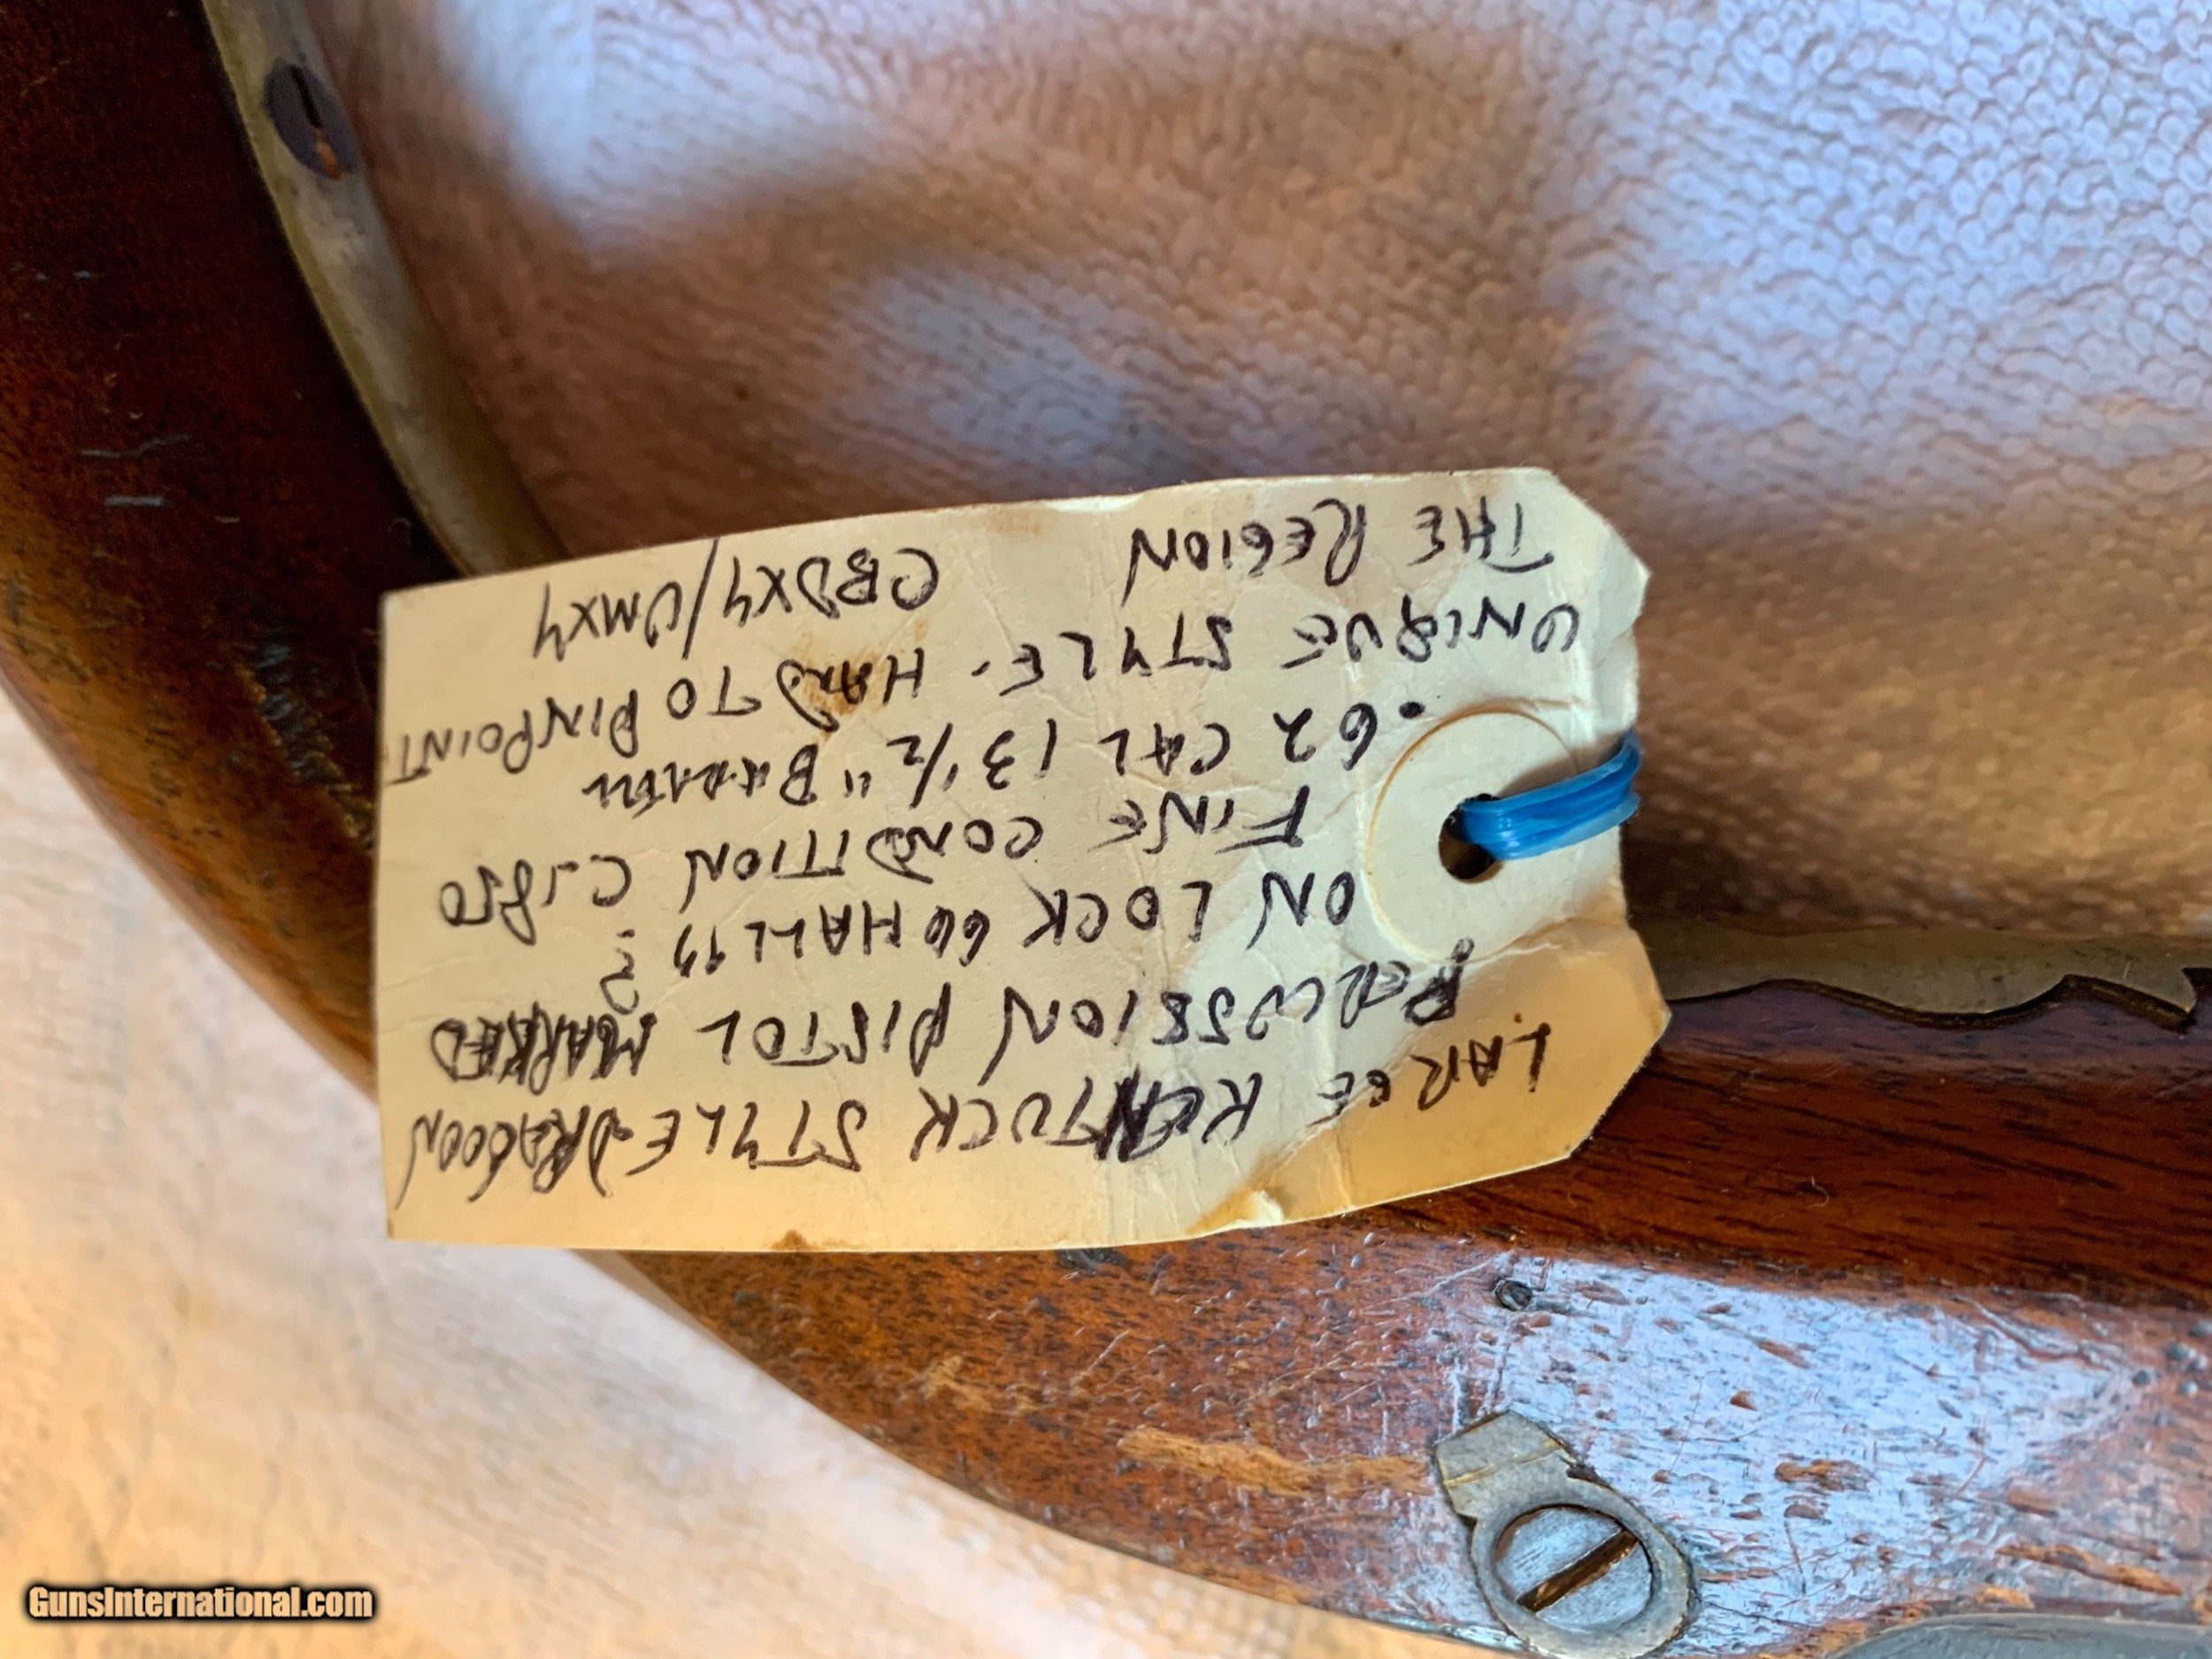 LARGE KENTUCK STYLE DRAGOON
PERCUSSION PISTOL MARKED
ON LOCK "HALL" ?
FINE CONDITION C-1850
.62 CAL 13 1/2" BARREL
UNIQUE STYLE. HARD TO PINPOINT
THE REGION CBDXY/UMXY
GunsInternational.com